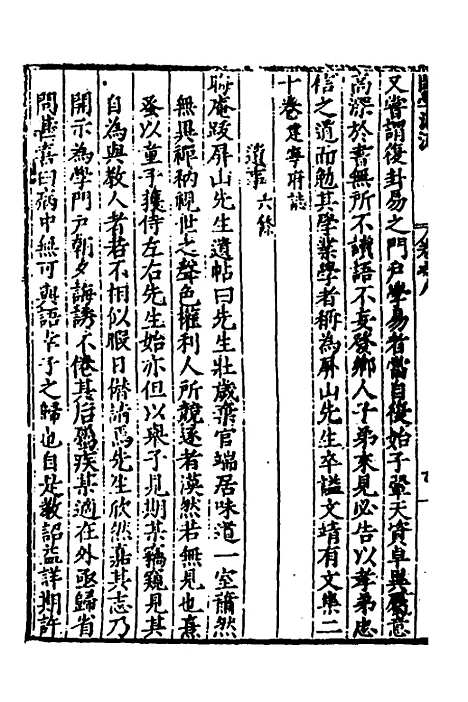 又嘗謂復卦易之門戶學易者當自復始子翬天資卓異屬意
高深於書無所不讀語不妄發鄉人子弟來見必告以孝弟忠
信之道而勉其學業學者稱為屏山先生卒謚文靖有文集二
十卷建寧府誌
遺事六條
晦庵跋屏山先生遺帖曰先生壯歲棄官端居味道一室蕭然
無異禪衲視世之聲色權利人所競逐者漠然若無見也熹
蚤以童子獲侍左右先生始亦但以舉子見期某竊窺見其
自為與教人者若不相似暇日僭請焉先生欣然嘉其志乃
開示為學門戶朝夕誨誘不倦其后屬疾某適在外亟歸省
問甚喜曰病中無可與語幸子之歸也自是教詔益詳期許